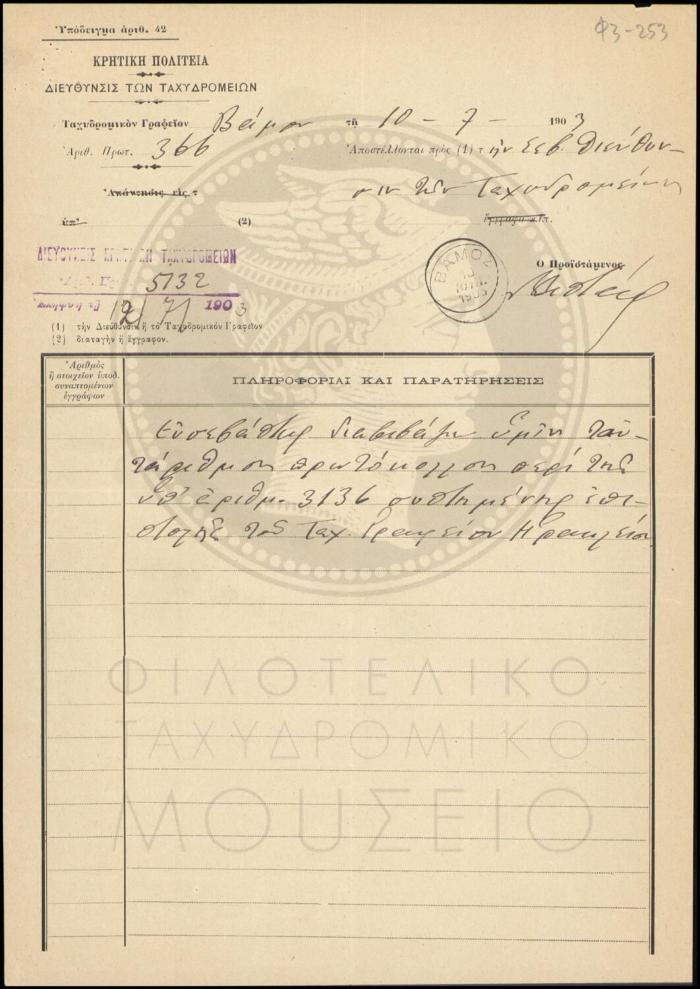 Ὑπόδειγμα ἀριθ. 42
Φ3-253
ΚΡΗΤΙΚΗ ΠΟΛΙΤΕΙΑ
ΔΙΕΥΘΥΝΣΙΣ ΤΩΝ ΤΑΧΥΔΡΟΜΕΙΩΝ
Ταχυδρομικὸν Γραφεῖον Βάμου τῇ 10 - 7 - 1903
Ἀριθ. Πρωτ. 366 Ἀποστέλλονται πρὸς (1) τὴν Σεβ. Διεύθυν-
Ἀπάντησις εἰς τ σιν τῶν Ταχυδρομείων
ὑπ' (2) ἔγγραφα
ΔΙΕΥΘΥΝΣΙΣ ΚΡΗΤΙΚΩΝ ΤΑΧΥΔΡΟΜΕΙΩΝ
5132
12/7/1903
ΒΑΜΟΣ
10
1903
Ὁ Προϊστάμενος
(1) τὴν Διεύθυνσιν ἢ τὸ Ταχυδρομικὸν Γραφεῖον
(2) διαταγὴν ἢ ἔγγραφον.
Ἀριθμὸς
ἢ στοιχεῖον ὑποδ.
συναπτομένων
ἐγγράφων
ΠΛΗΡΟΦΟΡΙΑΙ ΚΑΙ ΠΑΡΑΤΗΡΗΣΕΙΣ
Εὐσεβάστως διαβιβάζω ὑμῖν ταυ-
τάριθμον πρωτόκολλον περὶ τῆς
ὑπ' ἀριθμ. 3136 συστημένης ἐπι-
στολῆς τοῦ Ταχ. Γραφείου Ἡρακλείου
ΦΙΛΟΤΕΛΙΚΟ
ΤΑΧΥΔΡΟΜΙΚΟ
ΜΟΥΣΕΙΟ